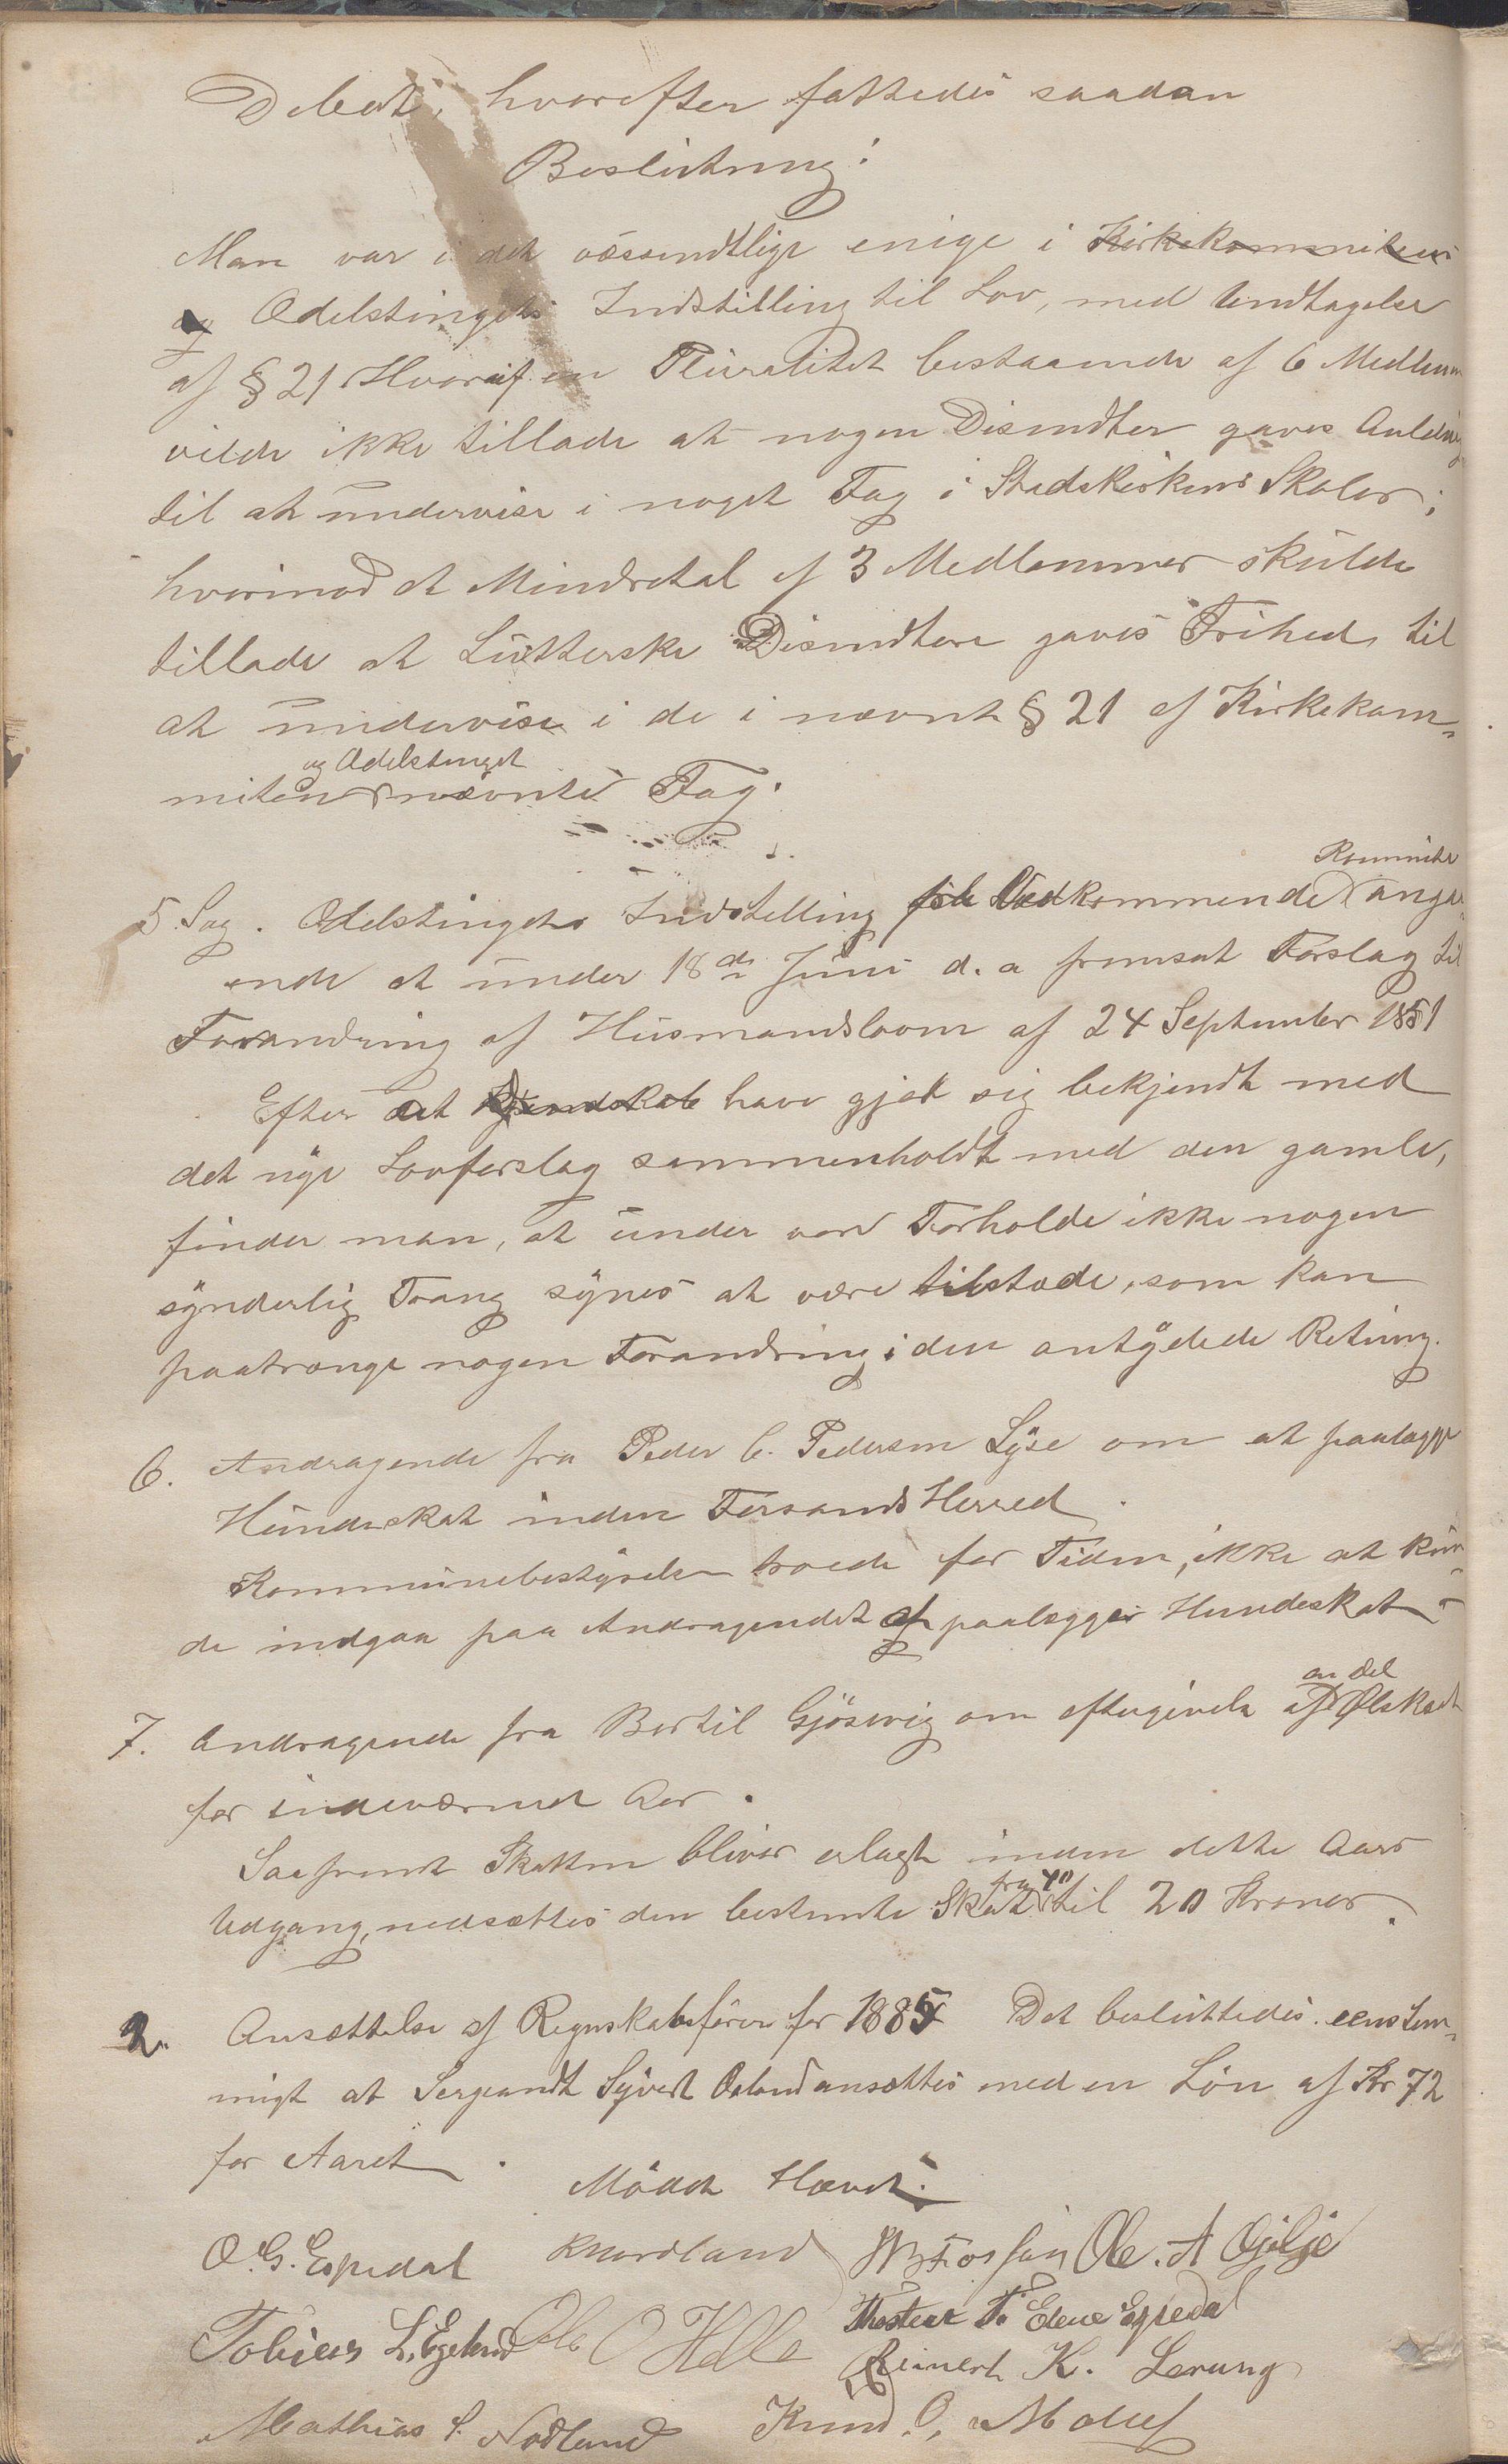 Debat, hvorefter fattedes saadan
Beslutning:
Man var i det væssendtlige enige i Kirkekommiteens
og Odelstingets Indstilling til Lov, med Undtagelse
af § 21 Hvoraf en Pluralitet bestaaende af 6 Medlem
vilde ikke tillade at nogen Disendter gaves Anledning
til at undervise i noget Fag i Stadskirkens Skoler;
hvorimod et Mindretal af 3 Medlemmer skulde
tillade at Lutterske Disendtere gaves Frihed til
at undervise i de i nævnte § 21 af Kirkekom-
og Odelstinget
miteen nævnte Fag.
Kommite
5. Sag. Odelstingets Indstilling fra Vedkommende anga-
ende et under 18de Juni d. a fremsat Forslag til
Forandring af Husmandsloven af 24 September 1851
Efter at Kjendskab have gjort sig bekjendt med
det nye Lovforslag sammenholdt med den gamle,
finder man, at under vore Forholde ikke nogen
synderlig Trang synes at være tilstæde, som kan
paatrænge nogen Forandring i den antydede Retning.
6. Andragende fra Peder C. Pedersen Lyse om at paalægge
Hundeskat inden Forsands Herred.
Kommunebestyrelsen troede for Tiden, ikke at kun-
de indgaa paa Andragendet at paalægge Hundeskat
7. Andragende fra Bertil Gjøsevig om eftergivelse af
en Del
Ølskat
for indeværende Aar.
Saafremt Skatten bliver erlagt inden dette Aars
fra 40
Udgang, nedsættes den bestemte Skat til 20 Kroner.
2. Ansættelse af Regnskabsfører for 1885 Det besluttedes eenstem-
migt at Sergeandt Sivert Østend ansættes med en Løn af Kr 72
for Aaret.
Mødet Hævet.
O. G. Espedal
K Nordland
Ole. A Gjilje
Tobias L. Egeland
Ole O Helle
Thostein T. Edene Espedal
Reinert K. Lerang
Mathias S. Nodland
Knud O.